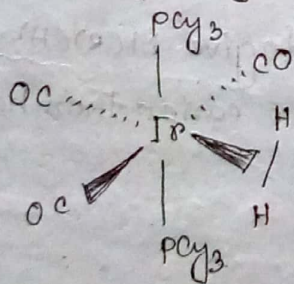 PCy3
OC
CO
Ir
H
OC
H
PCy3